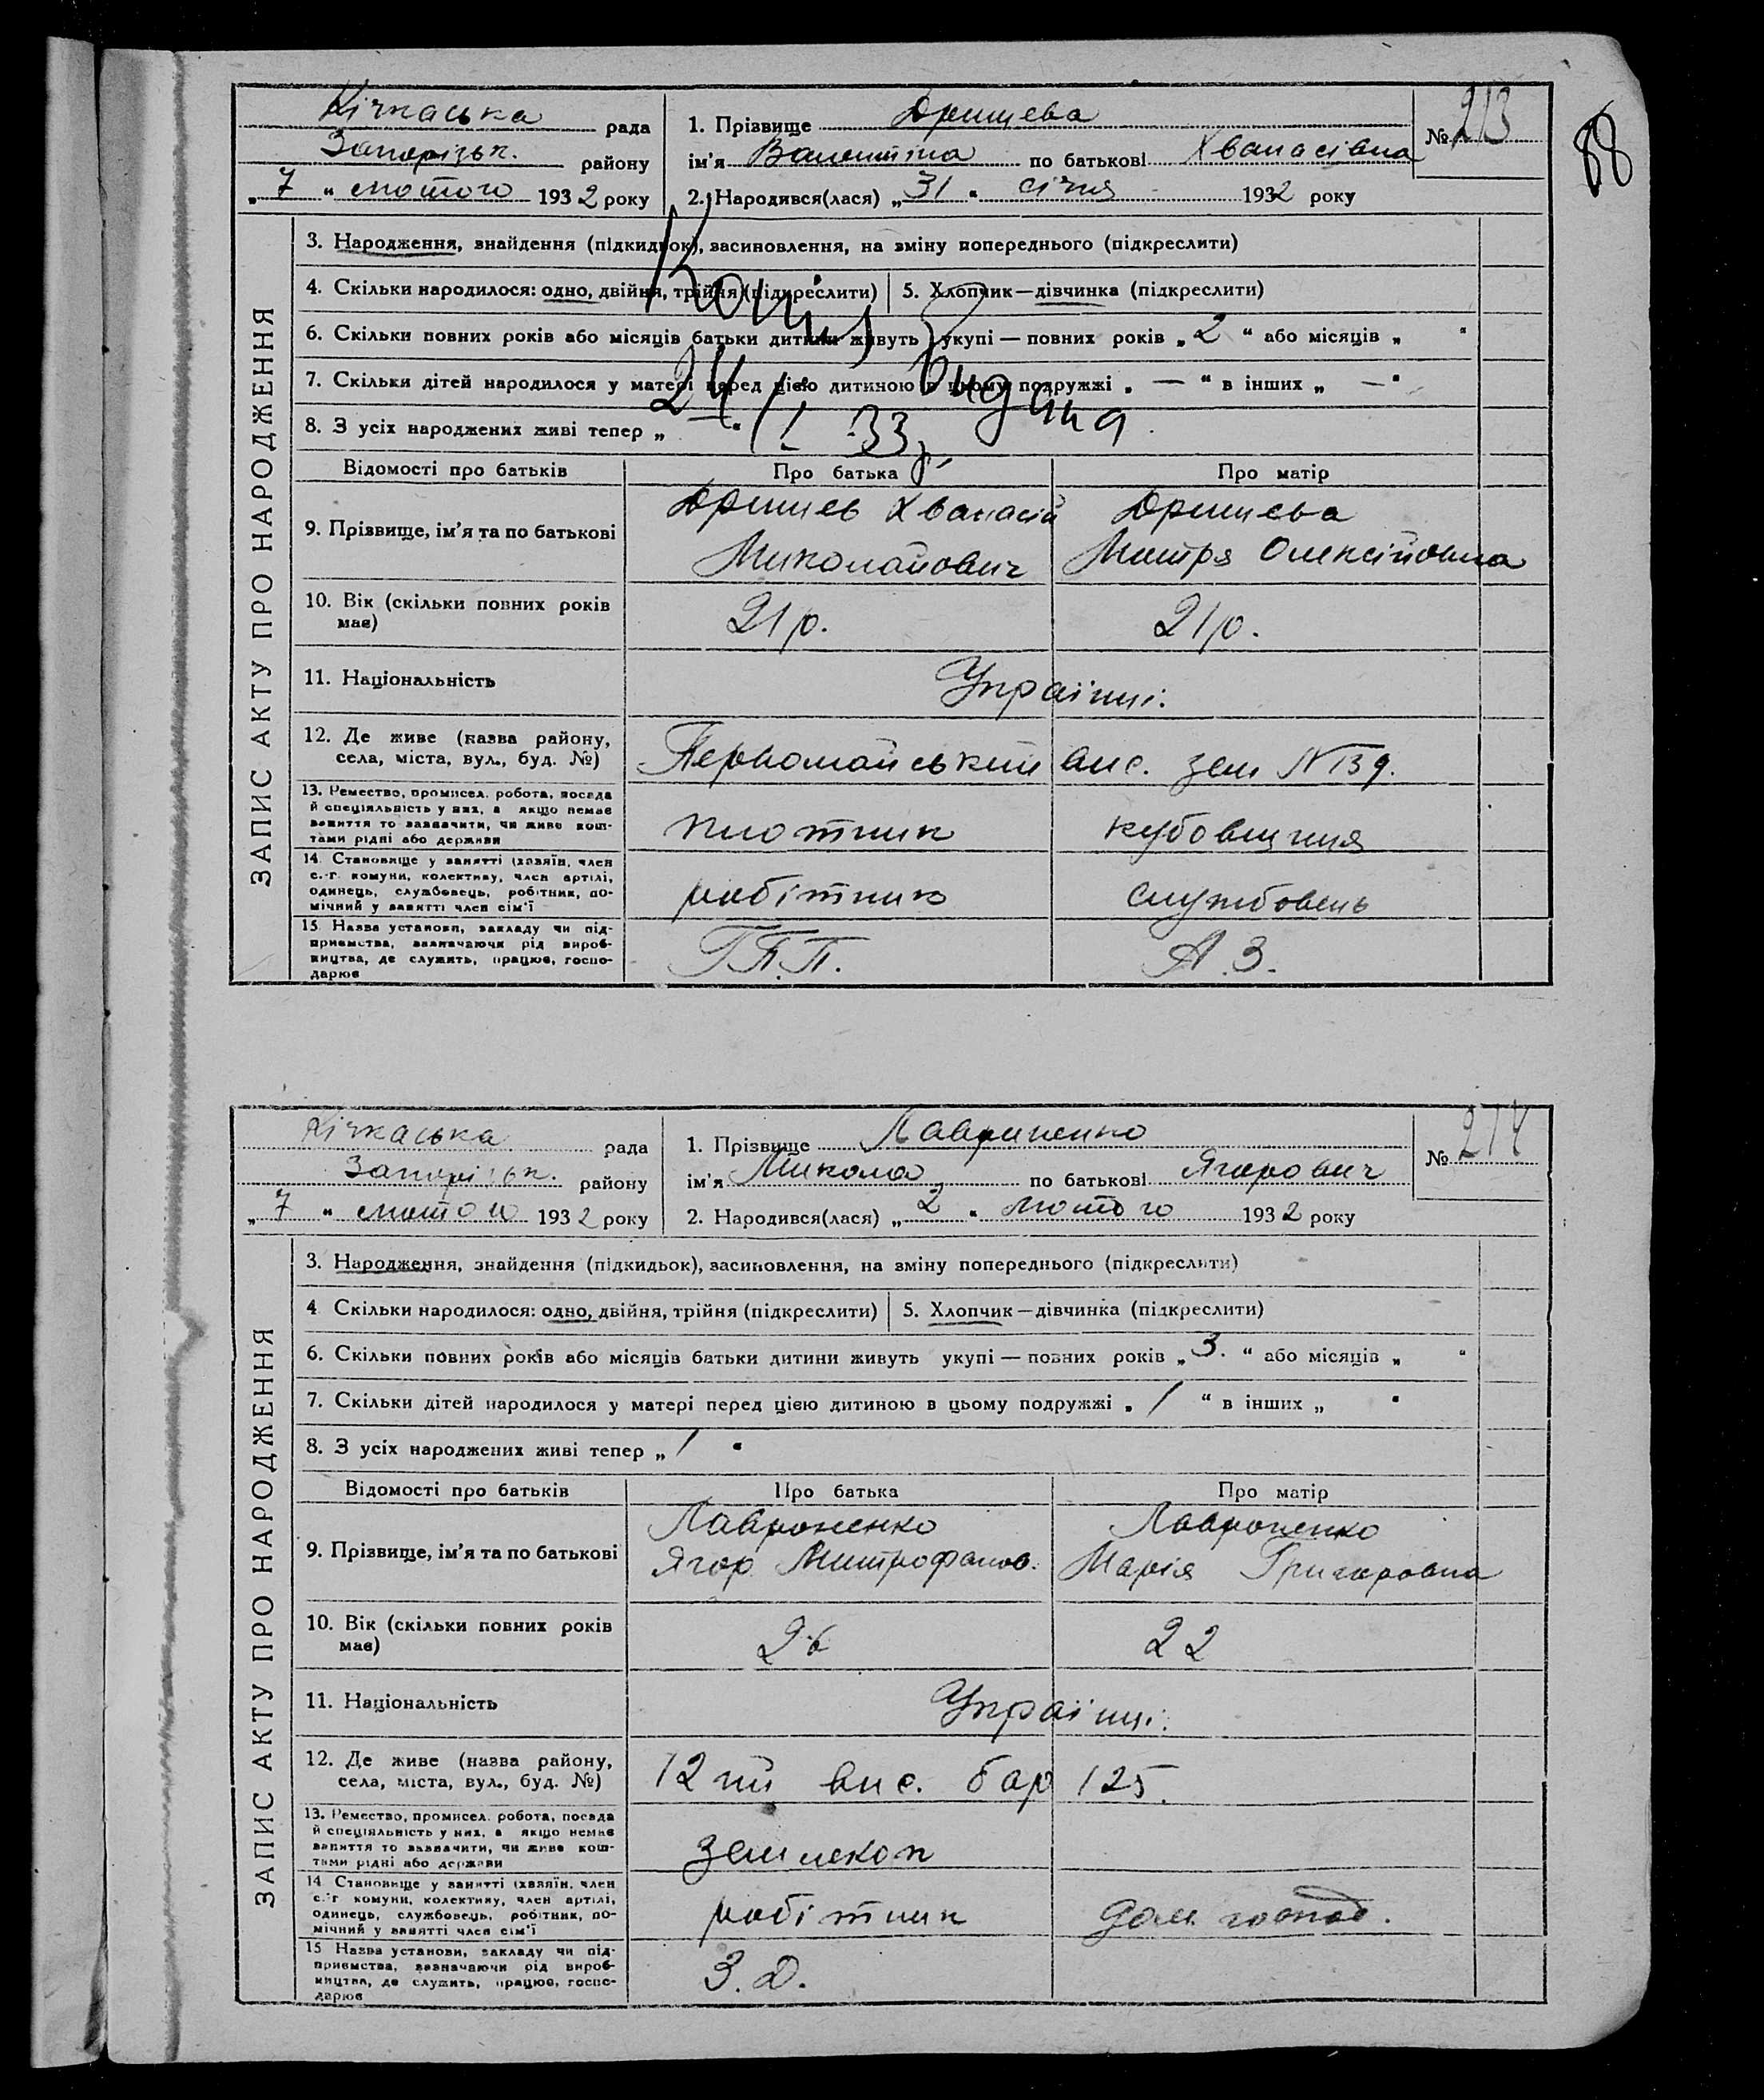 88
Кічкаська рада
Запорізьк. району
„ 7 “ лютого 1932 року
1. Прізвище Дришева
ім'я Валентина по батькові Хванасівна
2. Народився(лася) „ 31 “ січня 1932 року
№ 213
ЗАПИС АКТУ ПРО НАРОДЖЕННЯ
3. Народження, знайдення (підкидьок), засиновлення, на зміну попереднього (підкреслити)
4. Скільки народилося: одно, двійня, трійня (підкреслити)
5. Хлопчик—дівчинка (підкреслити)
6. Скільки повних років або місяців батьки дитини живуть укупі — повних років „ 2 “ або місяців „ “
7. Скільки дітей народилося у матері перед цією дитиною в цьому подружжі „ — “ в інших „ — “
8. З усіх народжених живі тепер „ “
Копія видана
24/I-33р.
Відомості про батьків
Про батька
Про матір
9. Прізвище, ім'я та по батькові
Дришев Хванасій
Миколайович
Дришева
Митря Олексіївна
10. Вік (скільки повних років має)
21 р.
21 р.
11. Національність
Українці.
12. Де живе (назва району,
села, міста, вул., буд. №)
Первомайський вис. зем N139.
13. Ремество, промисел, робота, посада
й спеціяльність у них, а якщо немає
заняття то зазначити, чи живе кош-
тами рідні або держави
плотник
кубовщиця
14. Становище у занятті (хазяїн, член
с.-г. комуни, колективу, член артілі,
одинець, службовець, робітник, по-
мічний у занятті член сім'ї
робітник
службовець
15. Назва установи, закладу чи під-
приємства, зазначаючи рід вироб-
ництва, де служить, працює, госпо-
дарює
Г.П.П.
А.З.
Кічкаська рада
Запорізьк. району
„ 7 “ лютого 1932 року
1. Прізвище Лавриненко
ім'я Микола по батькові Ягорович
2. Народився(лася) „ 2 “ лютого 1932 року
№ 214
ЗАПИС АКТУ ПРО НАРОДЖЕННЯ
3. Народження, знайдення (підкидьок), засиновлення, на зміну попереднього (підкреслити)
4 Скільки народилося: одно, двійня, трійня (підкреслити)
5. Хлопчик—дівчинка (підкреслити)
6. Скільки повних років або місяців батьки дитини живуть укупі — повних років „ 3. “ або місяців „ “
7. Скільки дітей народилося у матері перед цією дитиною в цьому подружжі „ 1 “ в інших „ “
8. З усіх народжених живі тепер „ 1 “
Відомості про батьків
Про батька
Про матір
9. Прізвище, ім'я та по батькові
Лавроненко
Ягор Митрофанов.
Лавроненко
Марія Григоровна
10. Вік (скільки повних років має)
26
22
11. Національність
Українці.
12. Де живе (назва району,
села, міста, вул., буд. №)
12 ий вис. бар 125.
13. Ремество, промисел, робота, посада
й спеціяльність у них, а якщо немає
заняття то зазначити, чи живе кош-
тами рідні або держави
землекоп
14 Становище у занятті (хазяїн, член
с.-г комуни, колективу, член артілі,
одинець, службовець, робітник, по-
мічний у занятті член сім'ї
робітник
дом. господ.
15 Назва установи, закладу чи під-
приємства, зазначаючи рід вироб-
ництва, де служить, працює, госпо-
дарює
З.Д.